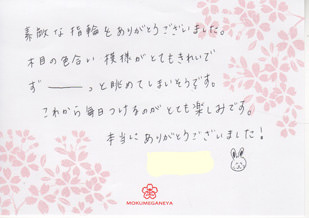 素敵な指輪をありがとうございました。
木目の色合い 模様がとてもきれいで
ず――っと眺めてしまいそうです。
これから毎日つけるのがとても楽しみです。
本当にありがとうございました！
MOKUMEGANEYA